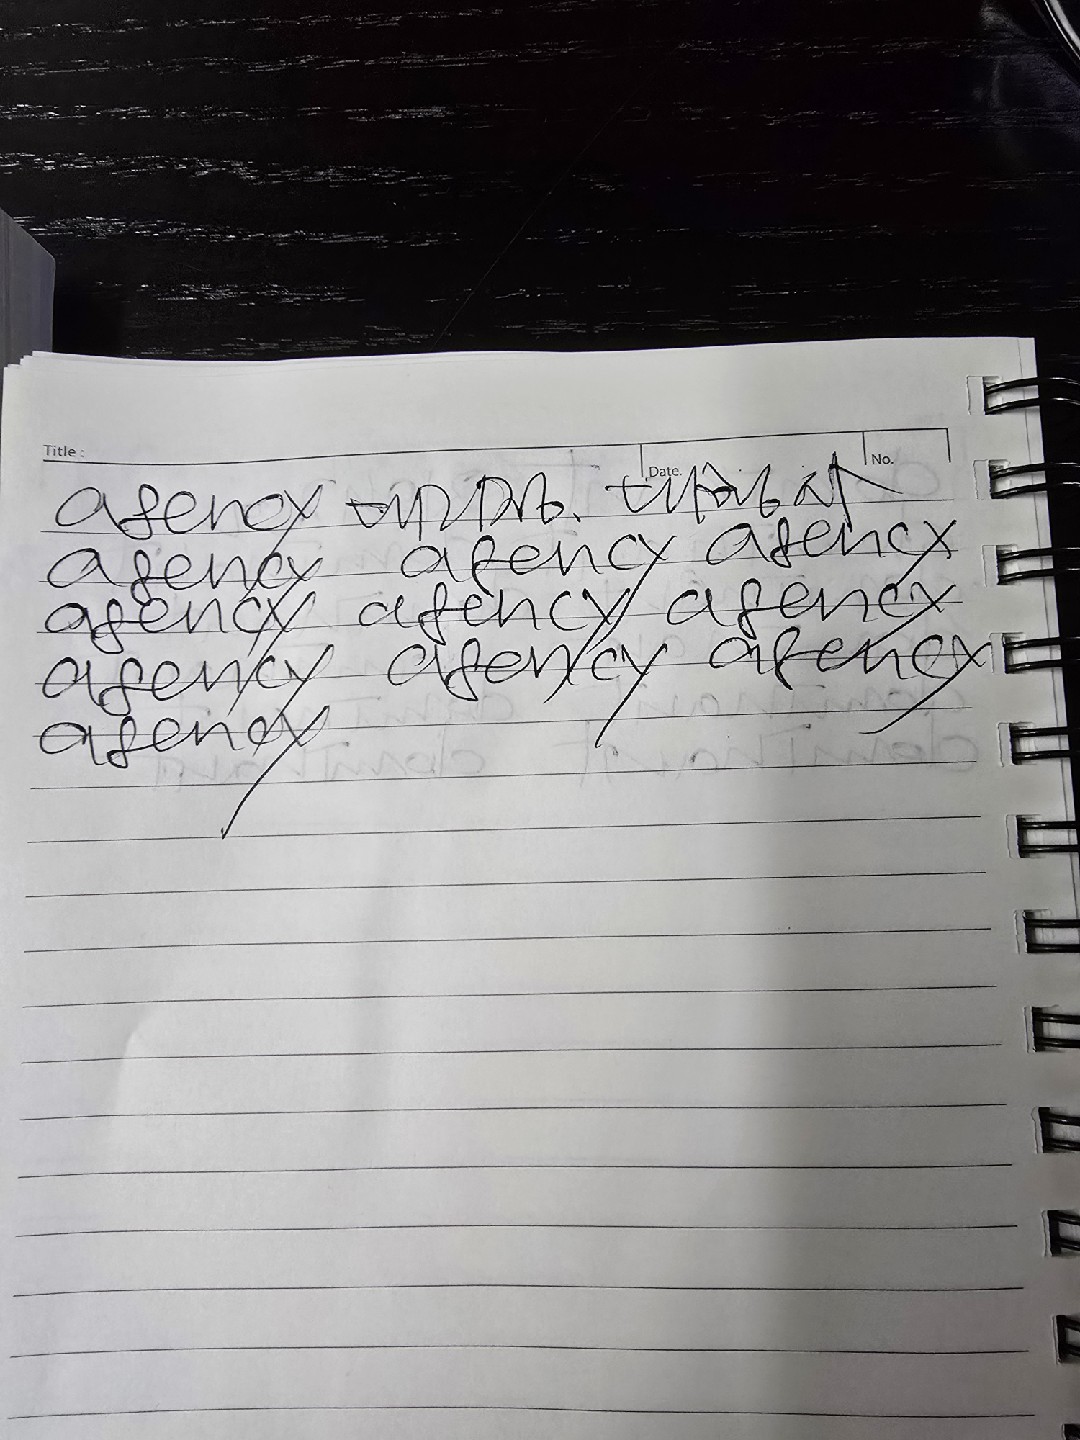 Title :
Date.
No.
agency 대리점, 대행사
agency agency agency
agency agency agency
agency agency agency
agency